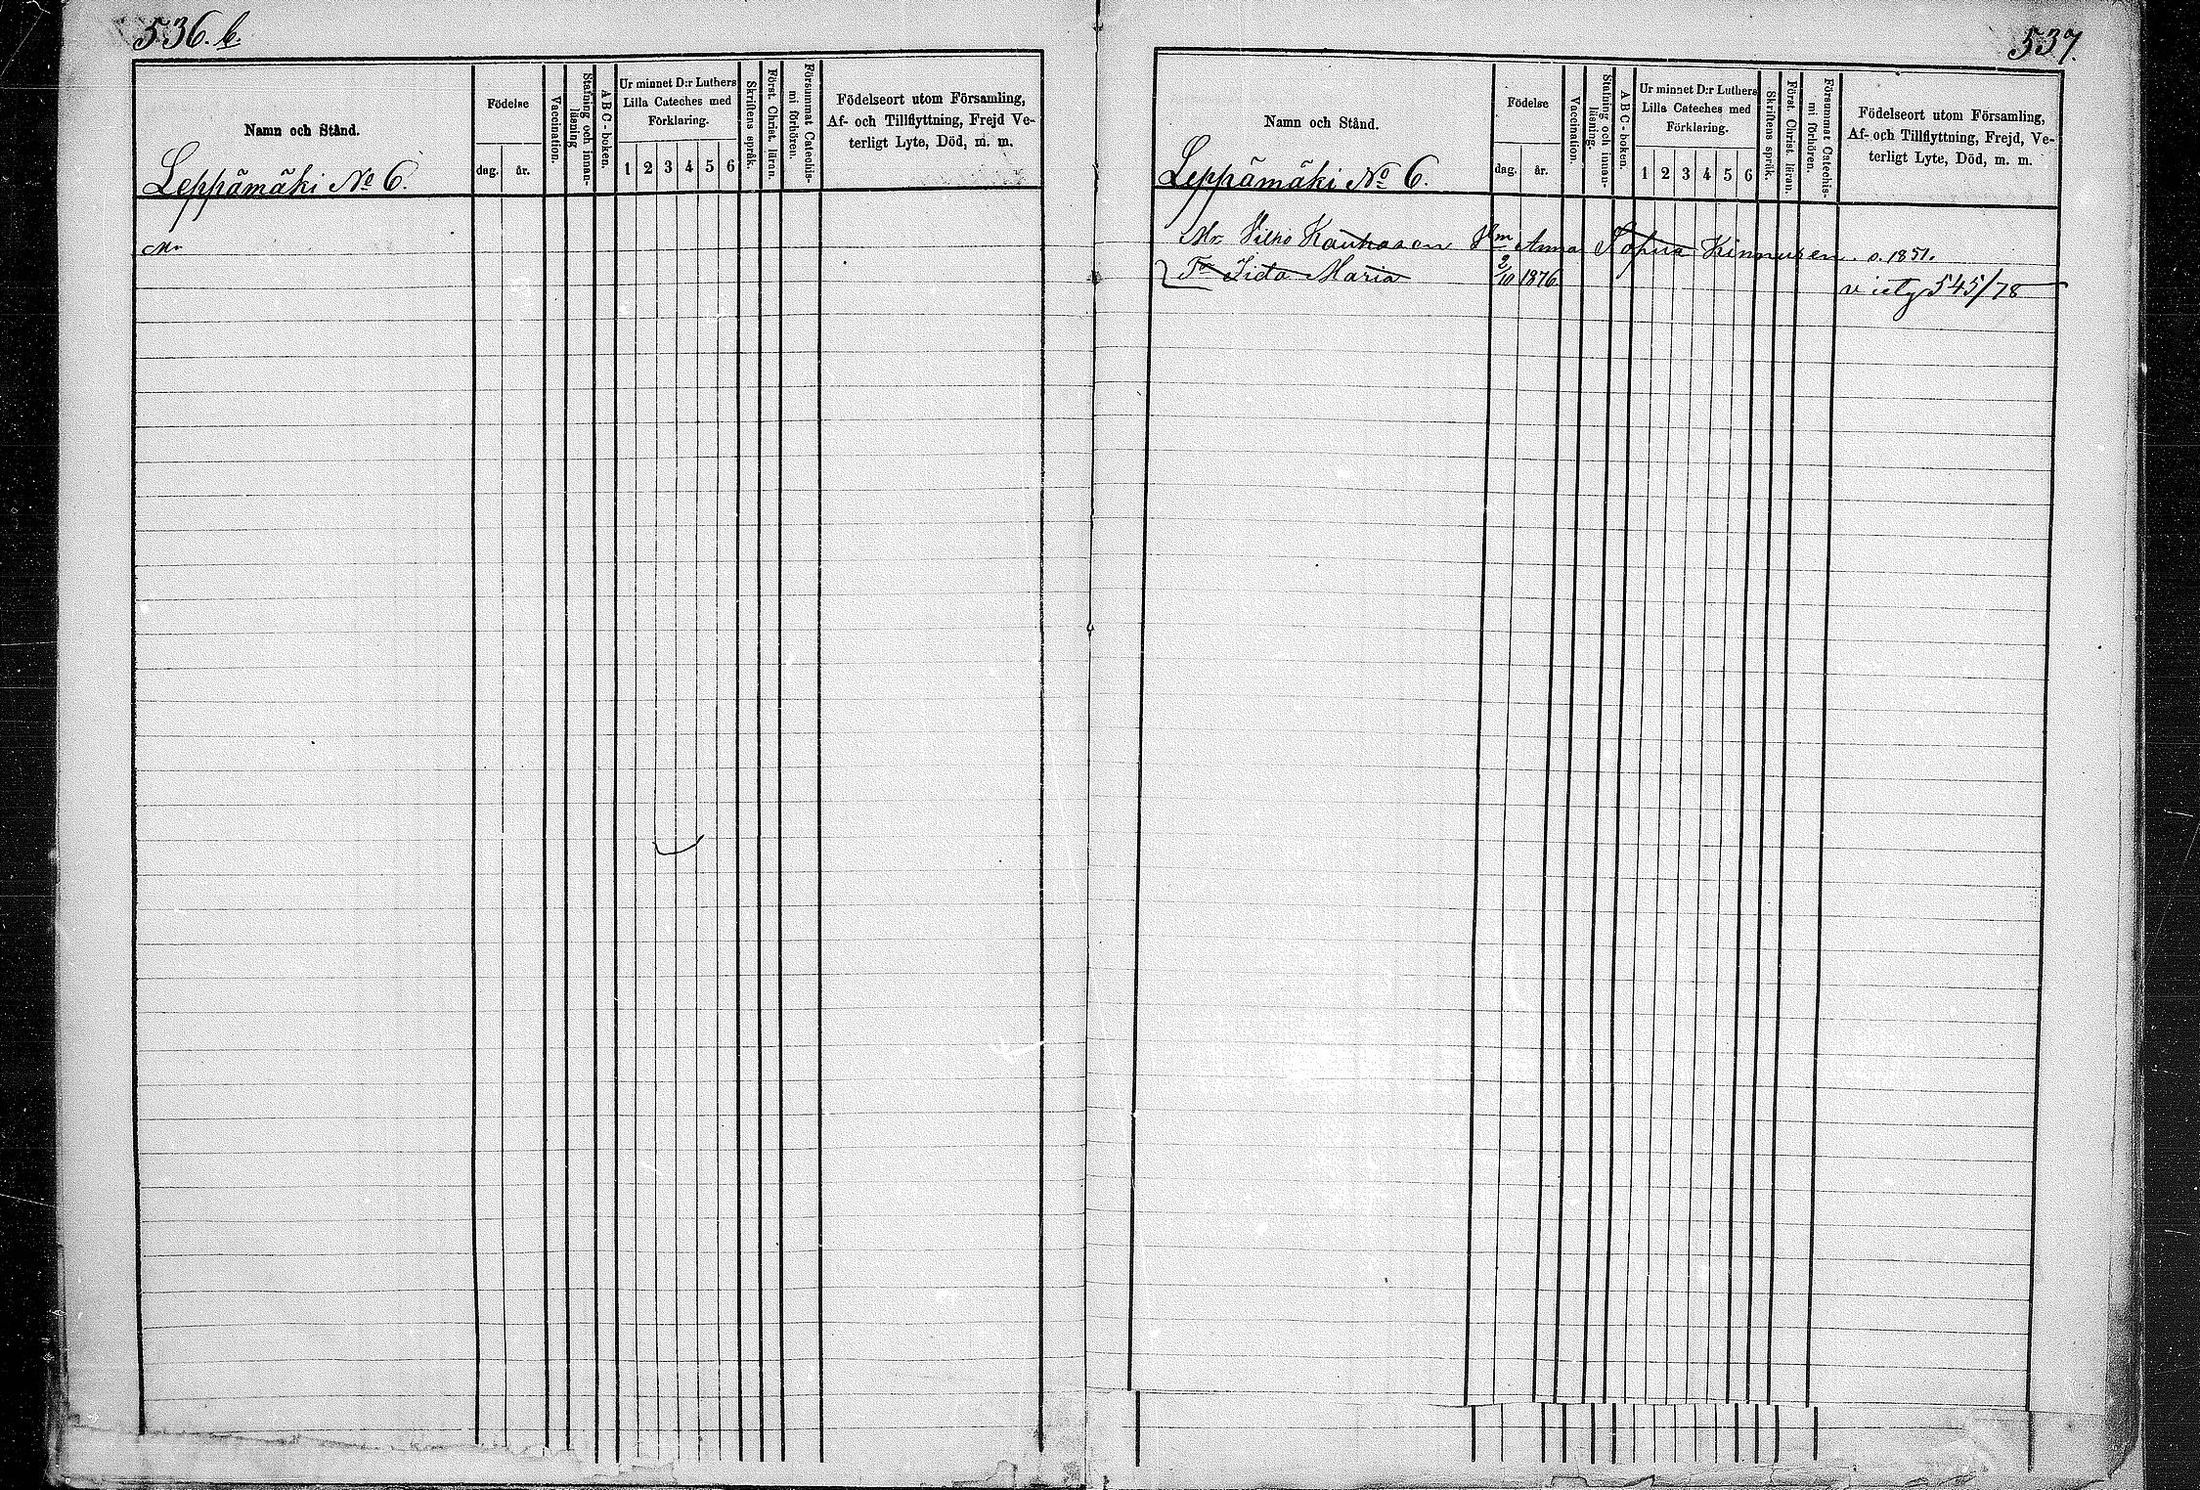 536.b.
Namn och Stånd.
Leppämäki No 6.
Födelse
dag.
år.
Vaccination.
Stafning och innan-
läsning
ABC-boken.
Ur minnet D:r Luthers
Lilla Cateches med
Förklaring.
1 2 3 4 5 6
Skriftens språk.
Först. Christ. läran.
Försummat Catechis-
mi förhören.
Födelseort utom Församling,
Af- och Tillflyttning, Frejd Ve-
terligt Lyte, Död, m. m.
Mr
537.
Namn och Stånd.
Leppämäki No 6.
Födelse
dag.
år.
Vaccination.
Stafning och innan-
läsning.
ABC-boken.
Ur minnet D:r Luthers
Lilla Cateches med
Förklaring.
1 2 3 4 5 6
Skriftens språk.
Först. Christ. läran.
Försummat Catechis-
mi förhören.
Födelseort utom Församling,
Af- och Tillflyttning, Frejd, Ve-
terligt Lyte, Död, m. m.
Mr Vilho Kauhanen Anna Sofiia Kinnunen. s. 1851.
Maria 2/10 1876 545/78